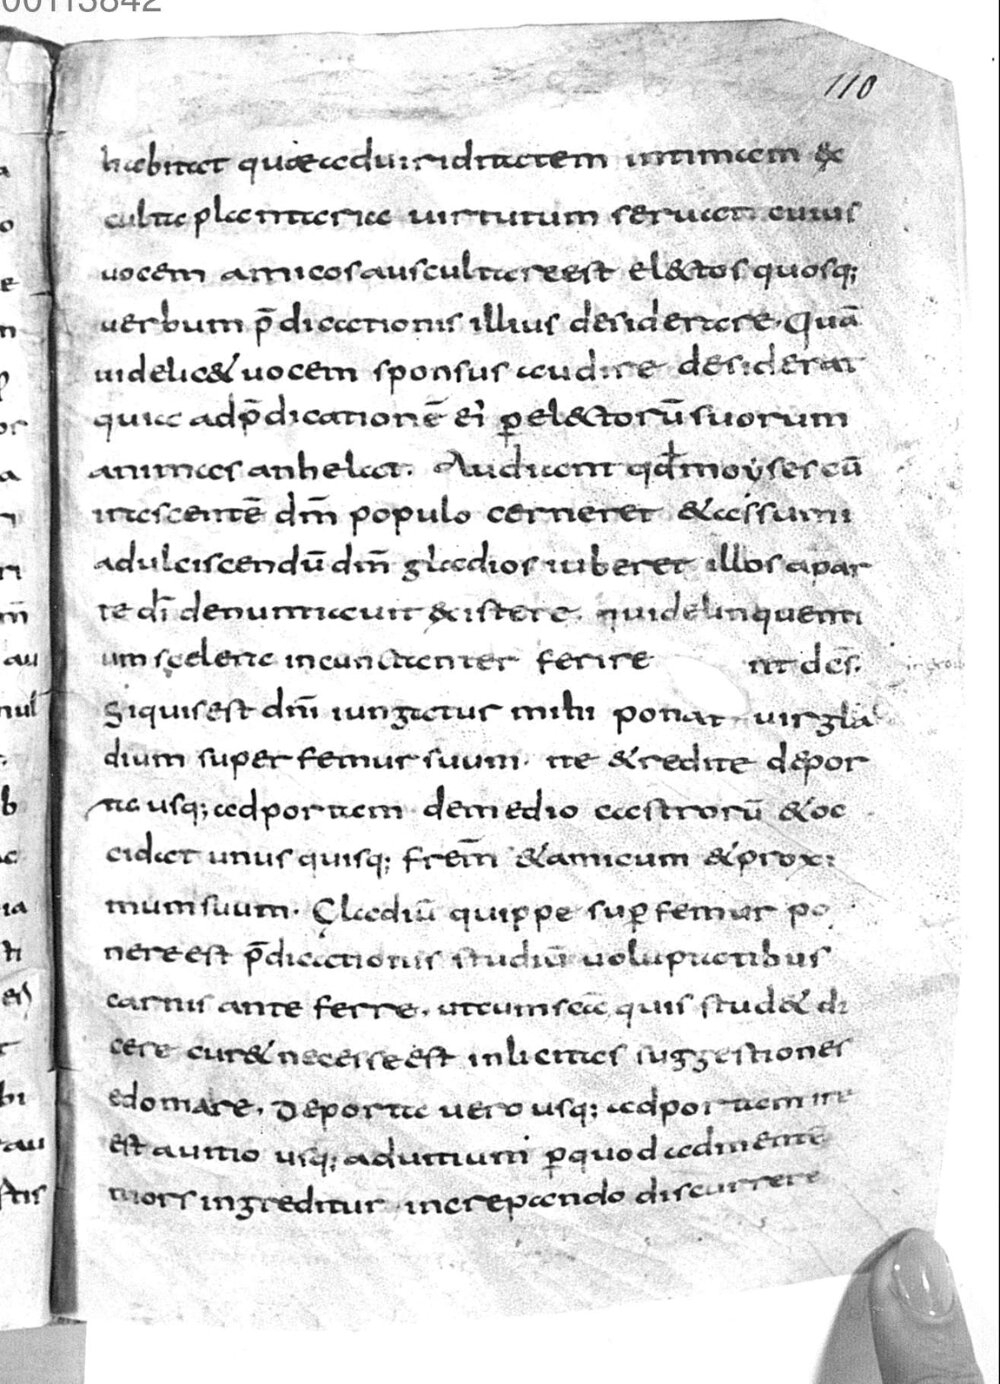 00113842
110
habitat quae ad uiriditatem intimam &
culta plantaria uirtutum seruat cuius
uocem amicos auscultare est el&tos quosq;
uerbum p̄dicationis illius desiderare. Quā
uidelic& uocem sponsus audire desiderat
quia ad p̄dicationē ei p̱ el&torū suorum
animas anhelat. Audiant qd̄ moyses cū
irascentē dm̄ populo cerneret & assumi
ad ulciscendū dm̄ gladios iuberet illos a par
te dī denuntiauit &istere. qui delinquenti
um scelera incunctanter ferire nt dc̄s.
Si quis est dnī iungatur mihi ponat uir gla
dium super femur suum. ite & redite de por
ta usq; ad portam de medio castrorū & oc
cidat unus quisq; frem̄ & amicum & proxi
mum suum. Gladiū quippe sup̱ femur po
nere est p̄dicationis studiū uoluptatibus
carnis ante ferre. ut cum sc̄a quis stud& di
cere cur& necesse est inlicitas suggestiones
edomare. De porta uero usq; ad portam ire
est a uitio usq; ad uitium p̱ quod ad mentē
mors ingreditur increpando discurrere